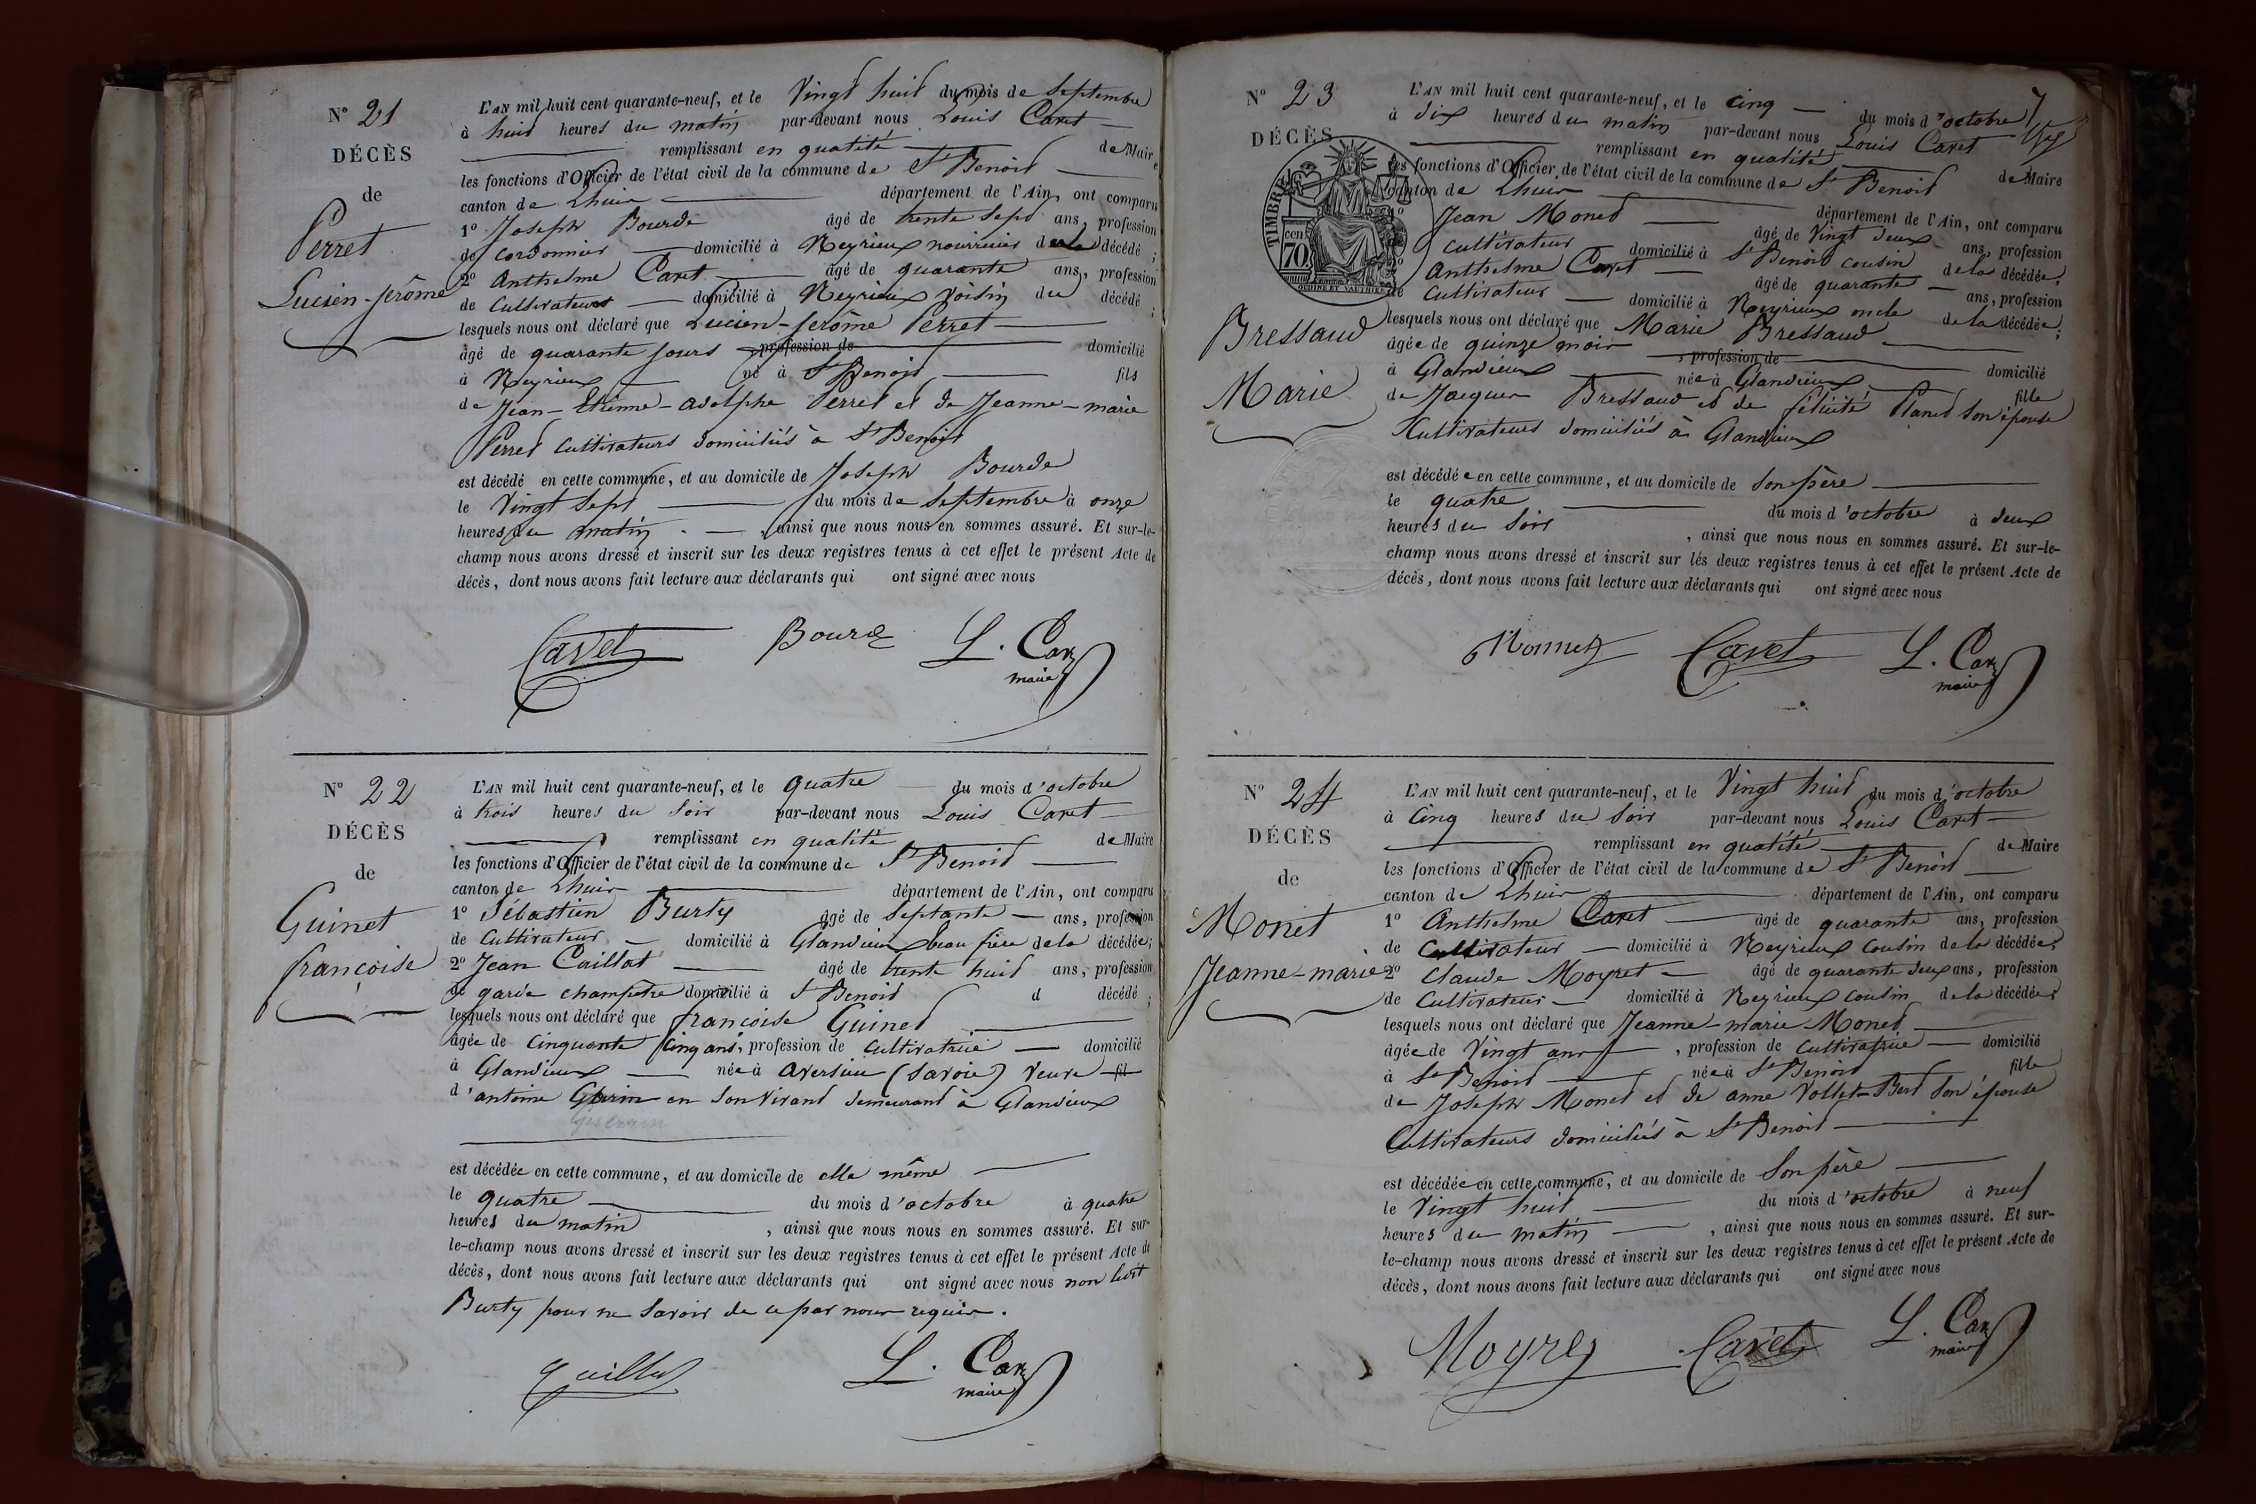 N° 21
DÉCÈS
de
Perret
Lucien-jérôme
L'AN mil huit cent quarante-neuf, et le Vingt huit du mois de Septembre
à huit heures du matin par-devant nous Louis Caret
remplissant en qualité de Maire
les fonctions d'Officier de l'état civil de la commune de St Benoit
canton de Lhuis département de l'Ain, ont comparu
1° Joseph Bourde âgé de trente sept ans, profession
de cordonnier domicilié à Neyrieux nourricier de la décédé ;
2° Anthelme Caret âgé de quarante ans, profession
de Cultivateur domicilié à Neyrieux Voisin du décédé ;
lesquels nous ont déclaré que Lucien-Jerôme Perret
âgé de quarante jours profession de domicilié
à Neyrieux né à St Benoit fils
de Jean-Etienne-adolphe Perret et de Jeanne-marie
Perret cultivateurs domiciliés à St Benoit
est décédé en cette commune, et au domicile de Joseph Bourde
le Vingt Sept du mois de Septembre à onze
heures du matin ainsi que nous nous en sommes assuré. Et sur-le-
champ nous avons dressé et inscrit sur les deux registres tenus à cet effet le présent Acte de
décès, dont nous avons fait lecture aux déclarants qui ont signé avec nous
Caret Bourde L. Caret
maire
N° 22
DÉCÈS
de
Guinet
françoise
L'AN mil huit cent quarante-neuf, et le quatre du mois d'octobre
à trois heures du Soir par-devant nous Louis Caret
remplissant en qualité de Maire
les fonctions d'Officier de l'état civil de la commune de St Benoit
canton de Lhuis département de l'Ain, ont comparu
1° Sébastien Burty âgé de Septante ans, profession
de Cultivateur domicilié à Glandieux beau frère de la décédée ;
2° Jean Caillat âgé de trente huit ans, profession
de garde champetre domicilié à St Benoit d décédé ;
lesquels nous ont déclaré que françoise Guinet
âgée de Cinquante Cinq ans, profession de Cultivatrice domicilié
à Glandieux née à aversieu (Savoie) Veuve fil
d'antoine Guerin en Son Vivant demeurant à Glandieux
est décédée en cette commune, et au domicile de elle même
le quatre du mois d'octobre à quatre
heures du matin, ainsi que nous nous en sommes assuré. Et sur-
le-champ nous avons dressé et inscrit sur les deux registres tenus à cet effet le présent Acte de
décès, dont nous avons fait lecture aux déclarants qui ont signé avec nous non ledit
Burty pour ne Savoir de ce par nous requis.
L. Caret
maire
N° 23
DÉCÈS
TIMBRE
70 cen
Bressaud
Marie
L'AN mil huit cent quarante-neuf, et le Cinq du mois d'octobre
à dix heures du matin par-devant nous Louis Caret
remplissant en qualité de Maire
les fonctions d'Officier de l'état civil de la commune de St Benoit
canton de Lhuis département de l'Ain, ont comparu
1° Jean Monet âgé de Vingt deux ans, profession
de Cultivateur domicilié à St Benoit cousin de la décédée ;
2° Anthelme Caret âgé de quarante ans, profession
de Cultivateur domicilié à Neyrieux oncle de la décédée ;
lesquels nous ont déclaré que Marie Bressaud
âgée de quinze mois, profession de domicilié
à Glandieux née à Glandieux fille
de Jacques Bressaud et de félicité Planet Son épouse
Cultivateurs domiciliés à Glandieux
est décédée en cette commune, et au domicile de Son père
le quatre du mois d'octobre à deux
heures du Soir, ainsi que nous nous en sommes assuré. Et sur-le-
champ nous avons dressé et inscrit sur les deux registres tenus à cet effet le présent Acte de
décès, dont nous avons fait lecture aux déclarants qui ont signé avec nous
Monnet Caret L. Caret
maire
N° 24
DÉCÈS
de
Monet
Jeanne-marie
L'AN mil huit cent quarante-neuf, et le Vingt huit du mois d'octobre
à Cinq heures du Soir par-devant nous Louis Caret
remplissant en qualité de Maire
les fonctions d'Officier de l'état civil de la commune de St Benoit
canton de Lhuis département de l'Ain, ont comparu
1° Anthelme Caret âgé de quarante ans, profession
de Cultivateur domicilié à Neyrieux Cousin de la décédée ;
2° Claude Moyret âgé de quarante deux ans, profession
de Cultivateur domicilié à Neyrieux cousin de la décédée ;
lesquels nous ont déclaré que Jeanne-marie Monet
âgée de Vingt ans, profession de Cultivatrice domicilié
à St Benoit née à St Benoit fille
de Joseph Monet et de anne Vollet-Bert Son épouse
Cultivateurs domiciliés à St Benoit
est décédée en cette commune, et au domicile de Son père
le Vingt huit du mois d'octobre à neuf
heures du matin, ainsi que nous nous en sommes assuré. Et sur-
le-champ nous avons dressé et inscrit sur les deux registres tenus à cet effet le présent Acte de
décès, dont nous avons fait lecture aux déclarants qui ont signé avec nous
Moyret Caret L. Caret
maire